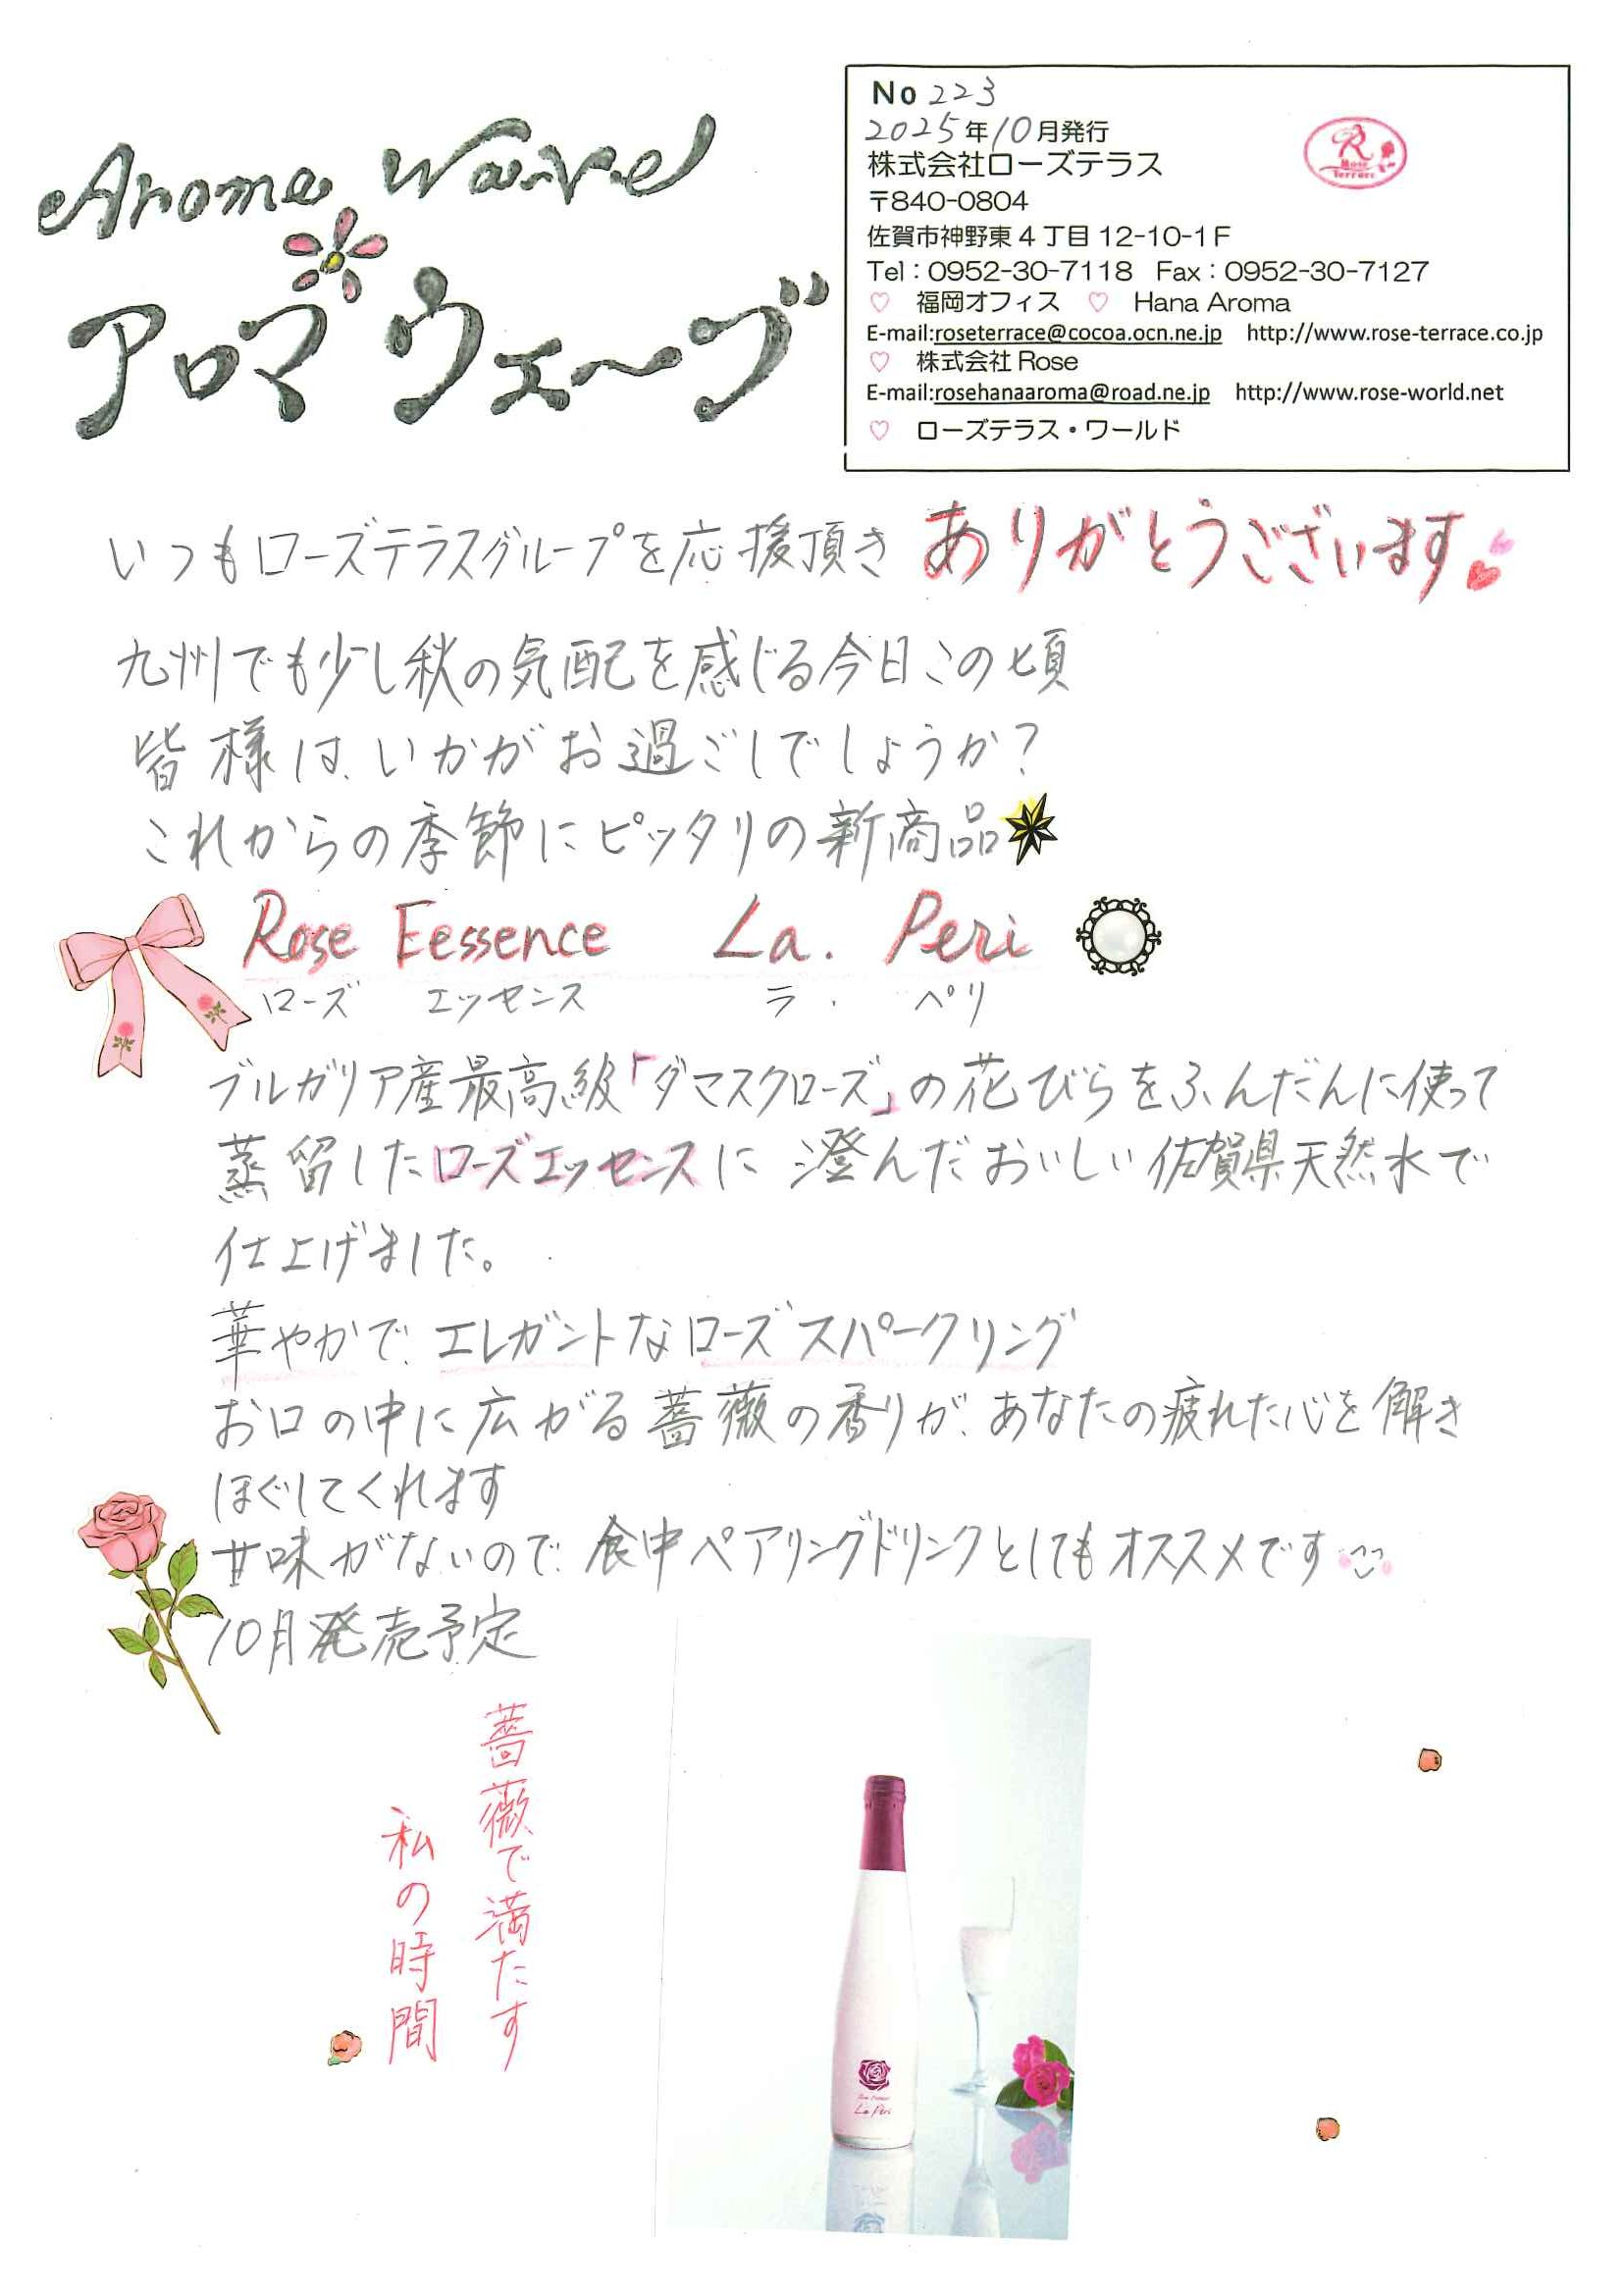 Arome Wave
アロマウェーブ
No 223
2025年10月発行
株式会社ローズテラス
〒840-0804
佐賀市神野東4丁目12-10-1F
Tel：0952-30-7118 Fax：0952-30-7127
♡ 福岡オフィス ♡ Hana Aroma
E-mail:roseterrace@cocoa.ocn.ne.jp http://www.rose-terrace.co.jp
♡ 株式会社Rose
E-mail:rosehanaaroma@road.ne.jp http://www.rose-world.net
♡ ローズテラス・ワールド
R
Rose
Terrace
いつもローズテラスグループを応援頂き ありがとうございます
九州でも少し秋の気配を感じる今日この頃
皆様は、いかがお過ごしでしょうか？
これからの季節にピッタリの新商品
Rose Eessence La. Peri
ローズ エッセンス ラ. ペリ
ブルガリア産最高級「ダマスクローズ」の花びらをふんだんに使って
蒸留したローズエッセンスに澄んだおいしい佐賀県天然水で
仕上げました。
華やかで、エレガントなローズスパークリング
お口の中に広がる薔薇の香りが、あなたの疲れた心を解き
ほぐしてくれます
甘味がないので、食中ペアリングドリンクとしてもオススメです
10月発売予定
薔薇で満たす
私の時間
La Peri